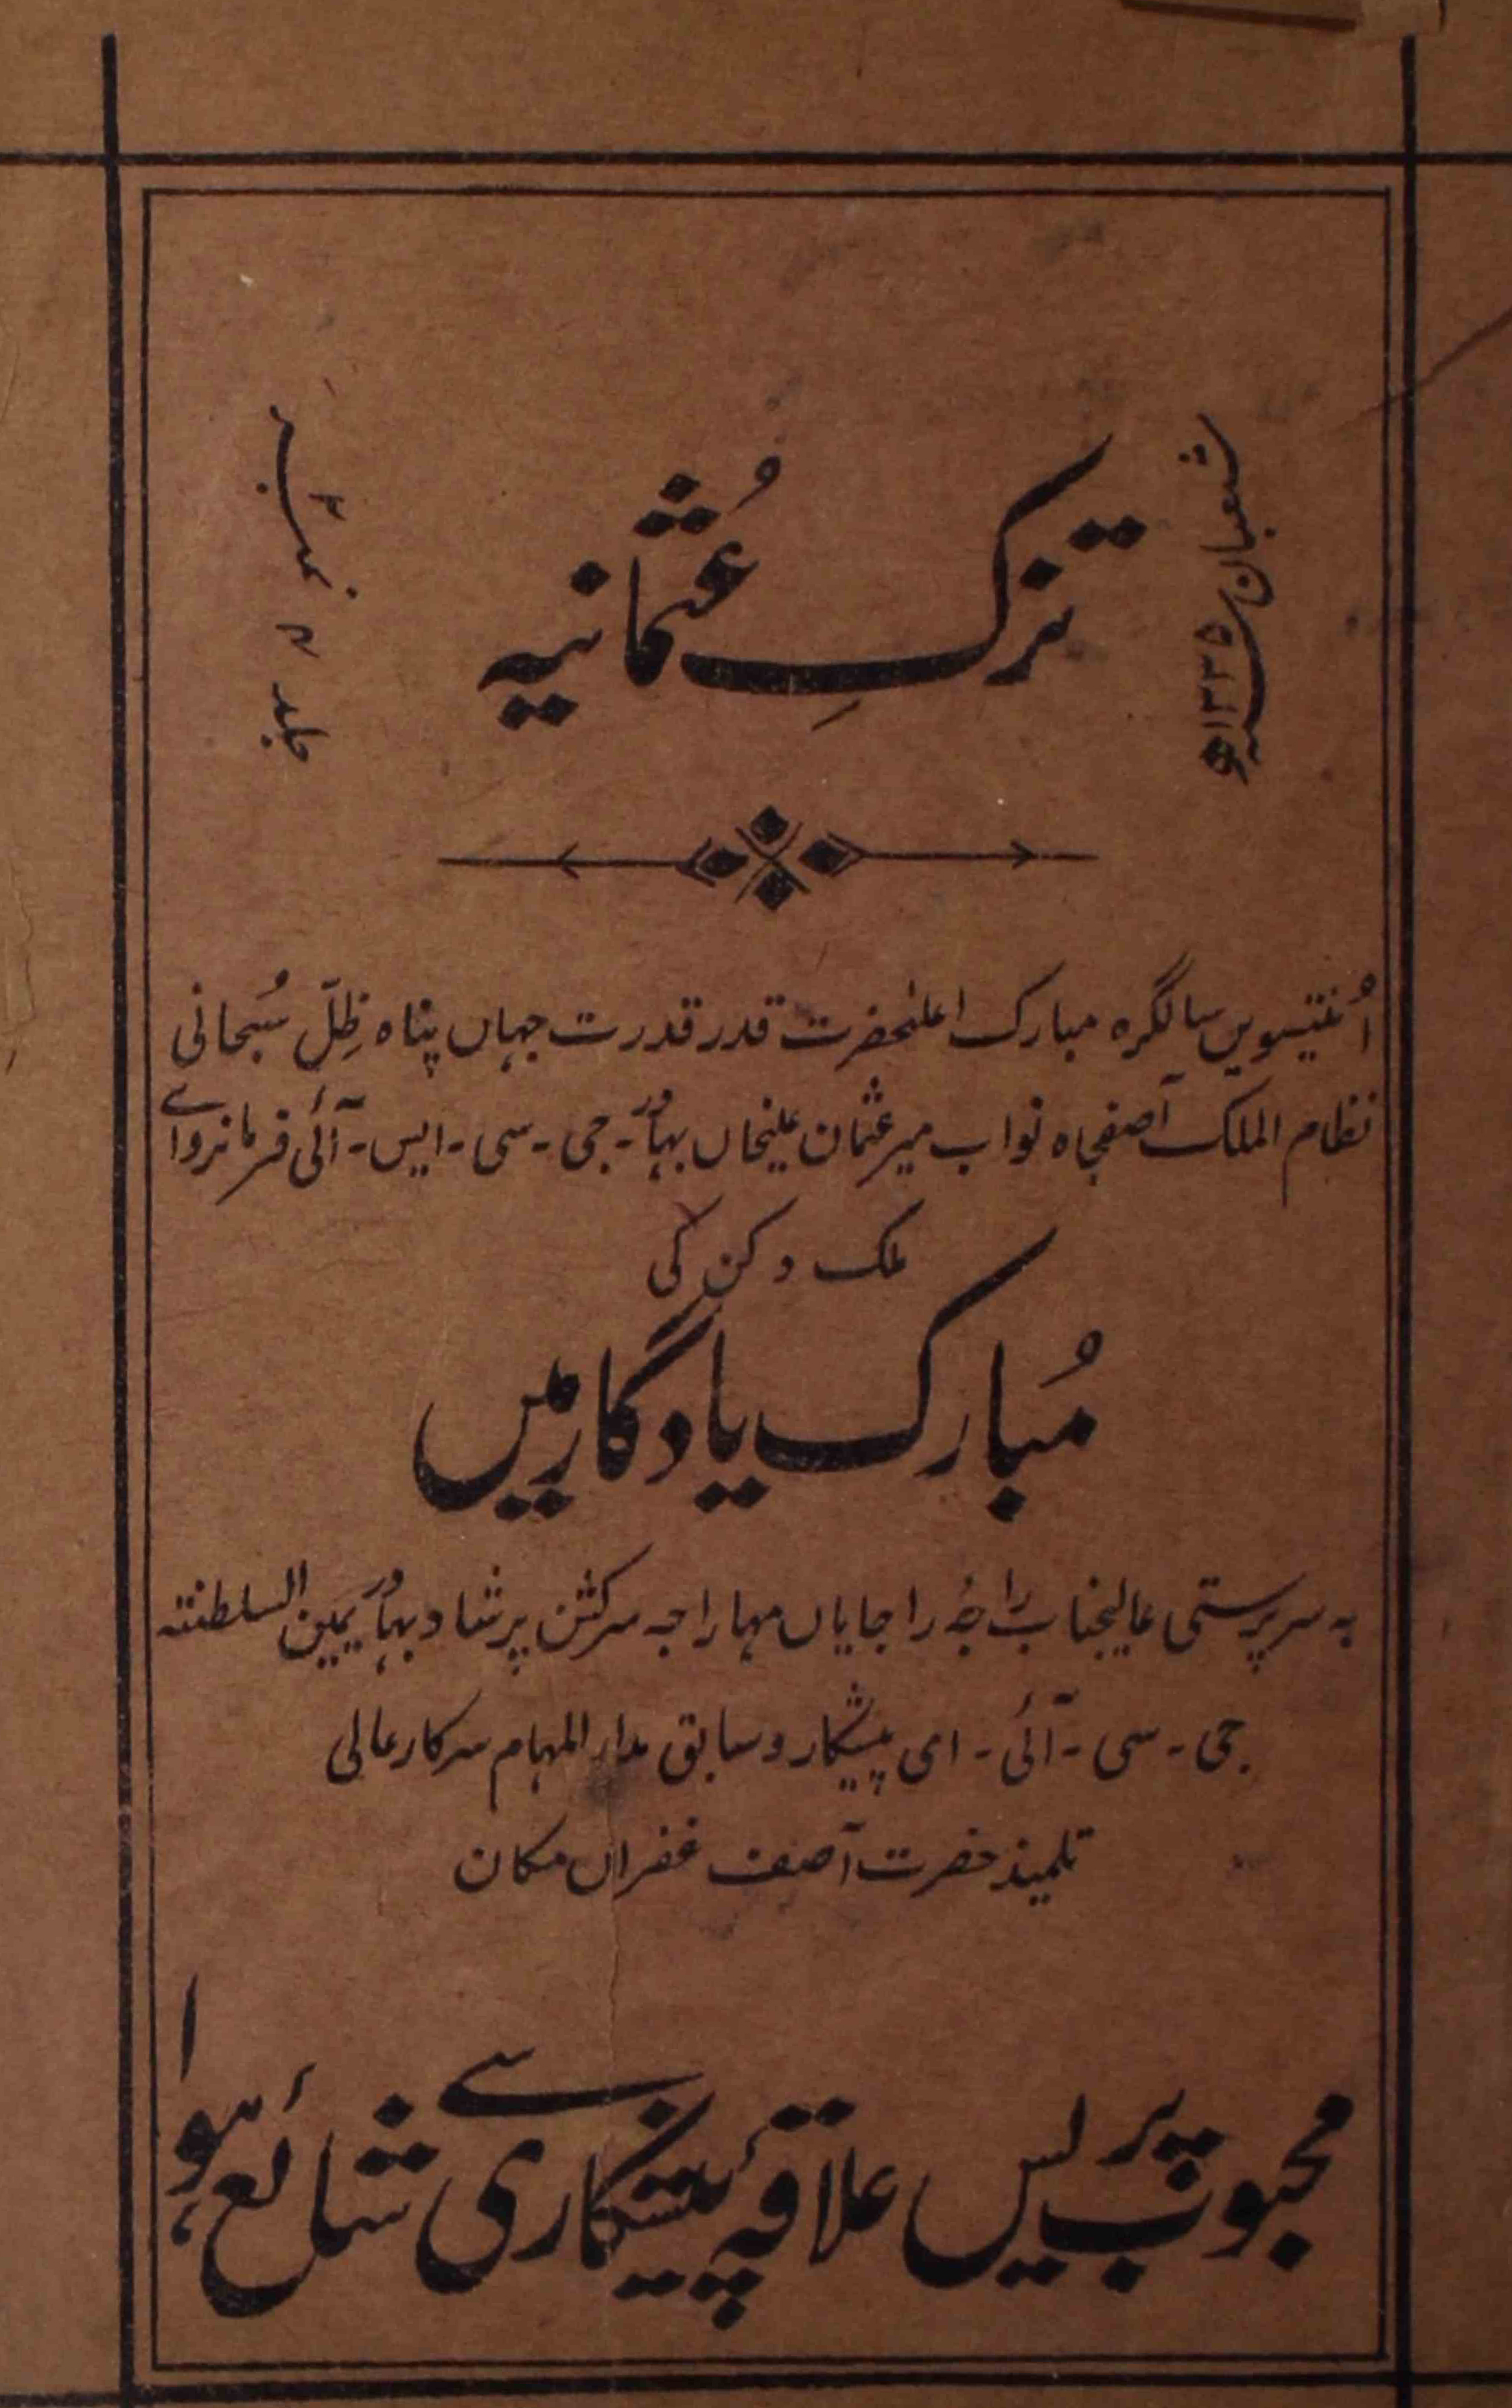 شعبان سنہ ۱۳۳۵ھ
تزکِ عُثمانیہ
جلد ۳ نمبر ۲
اُنتیسویں سالگرہ مبارک اعلٰحضرت قدر قدرت جہاں پناہ ظِلّ سُبحانی
نظام الملک آصفجاہ نواب میر عثمان علیخاں بہادر۔ جی۔ سی۔ ایس۔ آئی فرمانروائے
ملک دکن کی
مُبارک یادگار میں
بہ سرپرستی عالیجناب راجۂ راجایاں مہاراجہ سرکشن پرشاد بہادر یمین السلطنتہ
جی۔ سی۔ آئی۔ ای پیشکار و سابق مدار المہام سرکار عالی
تلمیذ حضرت آصف غفراں مکان
محبوب پریس علاقۂ پیشکاری سے شائع ہوا